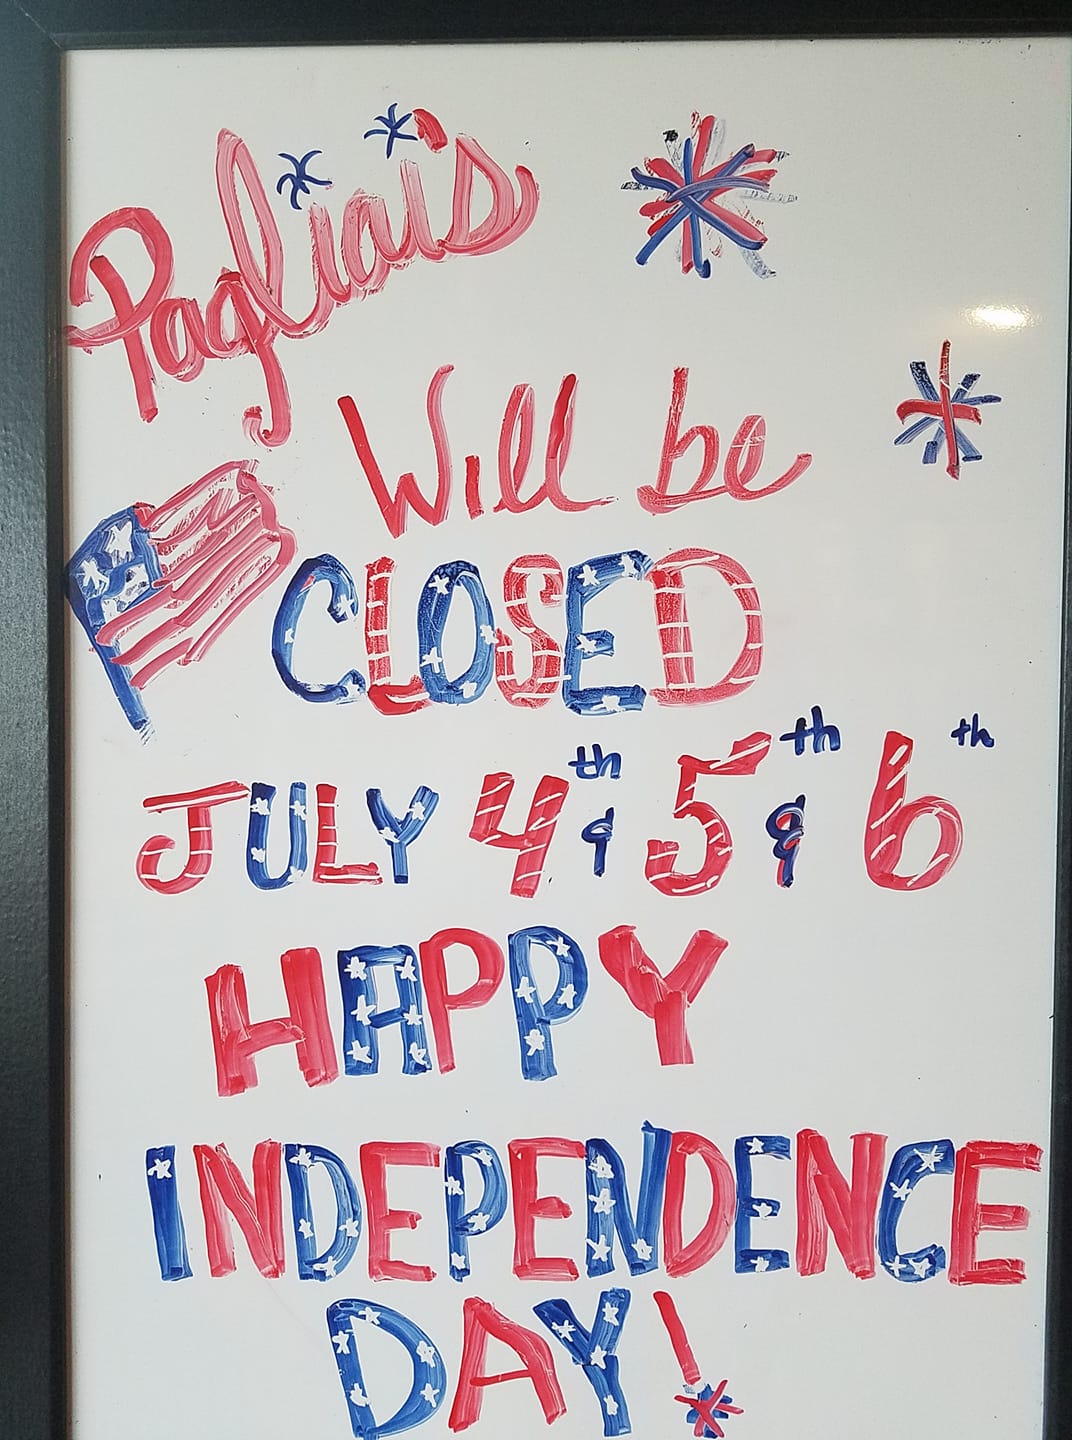 Pagliai's
Will be
CLOSED
JULY 4th & 5th & 6th
HAPPY
INDEPENDENCE
DAY!